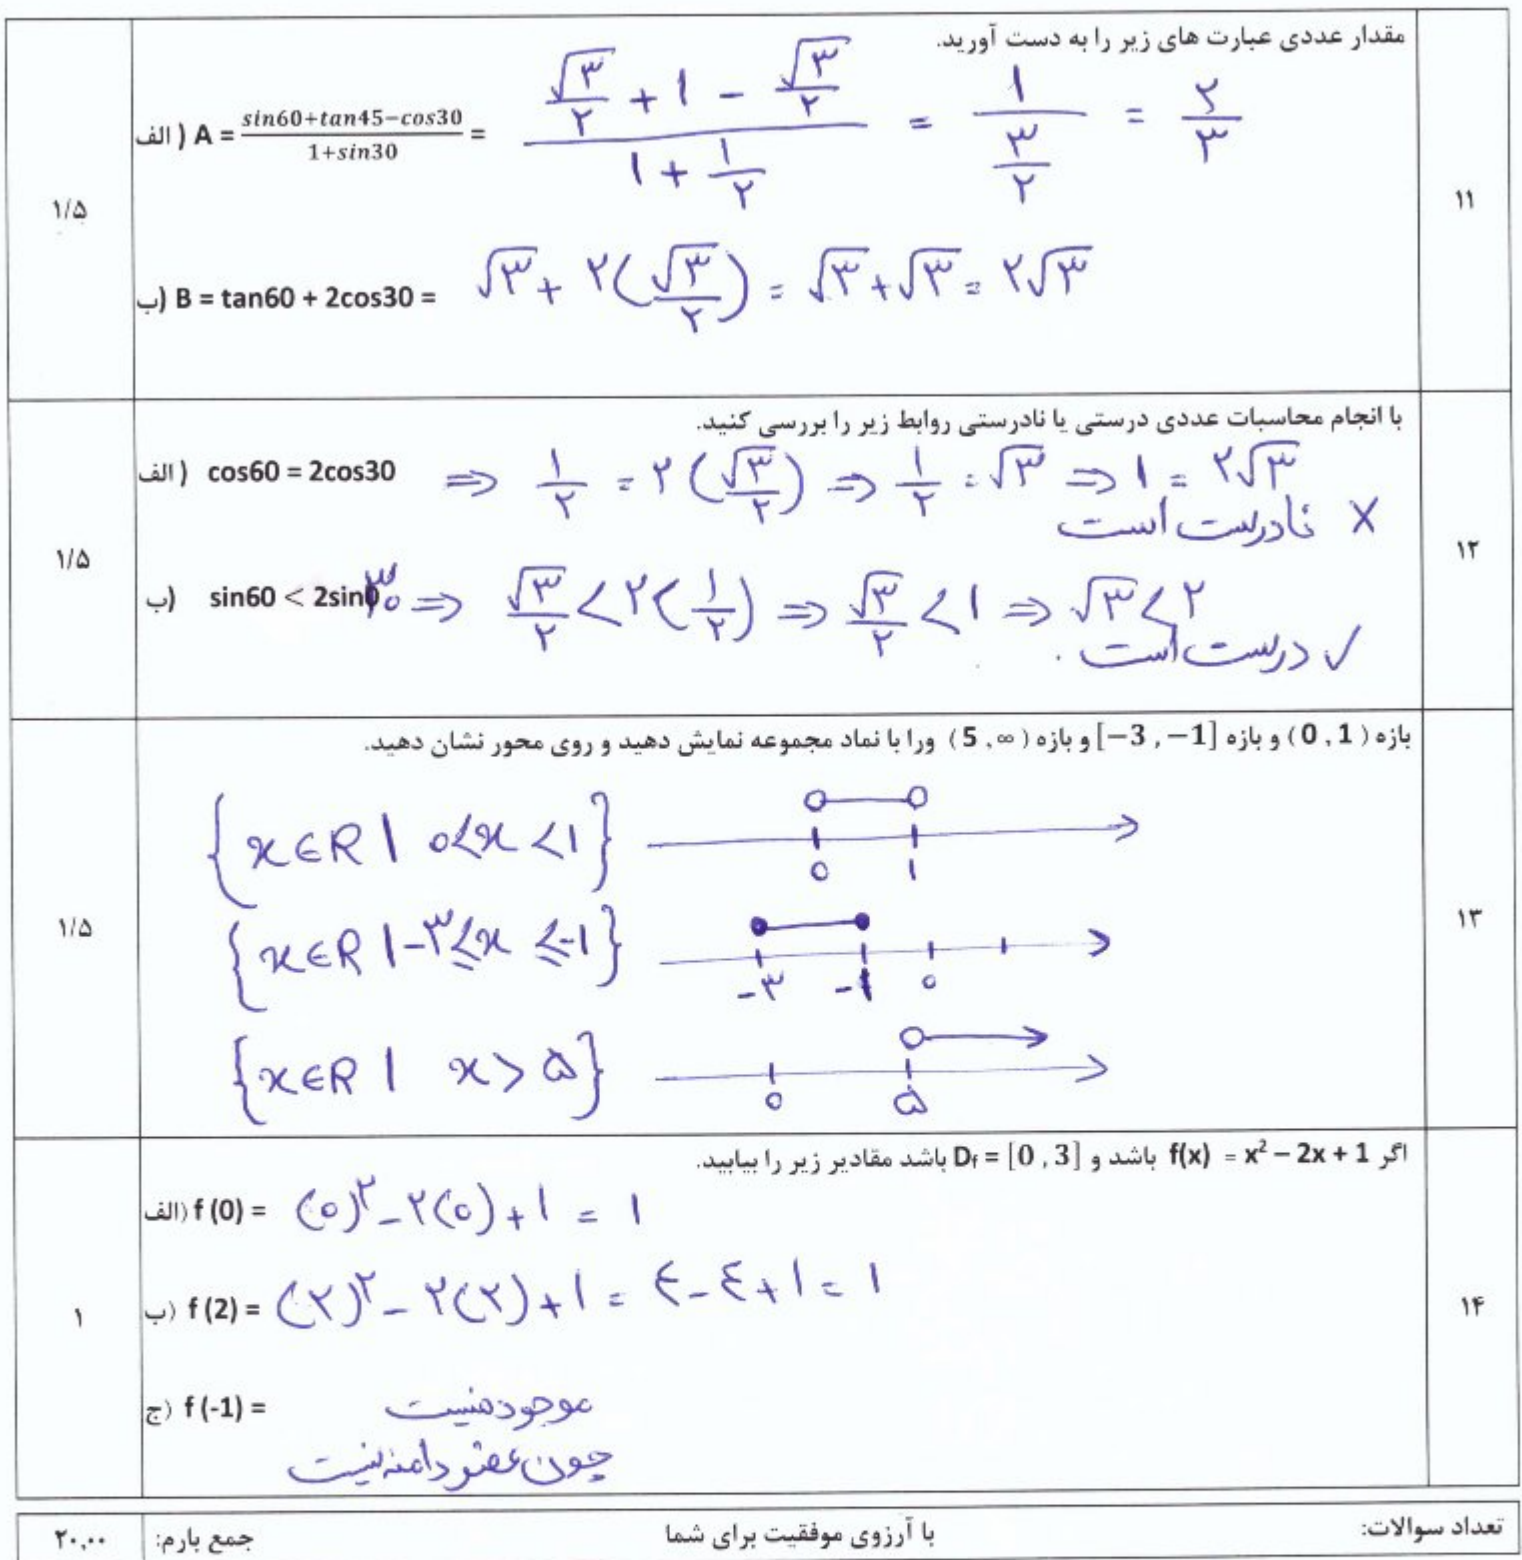 ۱۱
مقدار عددی عبارت های زیر را به دست آورید.
الف ) A = (sin60+tan45−cos30)/(1+sin30) = (√۳/۲ + ۱ − √۳/۲)/(۱ + ۱/۲) = ۱/(۳/۲) = ۲/۳
ب) B = tan60 + 2cos30 = √۳ + ۲(√۳/۲) = √۳ + √۳ = ۲√۳
۱/۵
۱۲
با انجام محاسبات عددی درستی یا نادرستی روابط زیر را بررسی کنید.
الف ) cos60 = 2cos30 ⇒ ۱/۲ = ۲(√۳/۲) ⇒ ۱/۲ = √۳ ⇒ ۱ = ۲√۳
نادرست است X
ب) sin60 < 2sin۳۰ ⇒ √۳/۲ < ۲(۱/۲) ⇒ √۳/۲ < ۱ ⇒ √۳ < ۲
✓ درست است .
۱/۵
۱۳
بازه (0 , 1) و بازه [−3 , −1] و بازه (5 , ∞) ورا با نماد مجموعه نمایش دهید و روی محور نشان دهید.
{x∈R | ۰<x<۱} ۰ ۱
{x∈R | -۳≤x≤-۱} -۳ -۱ ۰
{x∈R | x>۵} ۰ ۵
۱/۵
۱۴
اگر f(x) = x² – 2x + 1 باشد و Df = [0 , 3] باشد مقادیر زیر را بیابید.
الف) f (0) = (۰)² − ۲(۰) + ۱ = ۱
ب) f (2) = (۲)² − ۲(۲) + ۱ = ٤ − ٤ + ۱ = ۱
ج) f (-1) = موجود نیست
چون عضو دامنه نیست
۱
تعداد سوالات:
با آرزوی موفقیت برای شما
جمع بارم:
۲۰,۰۰